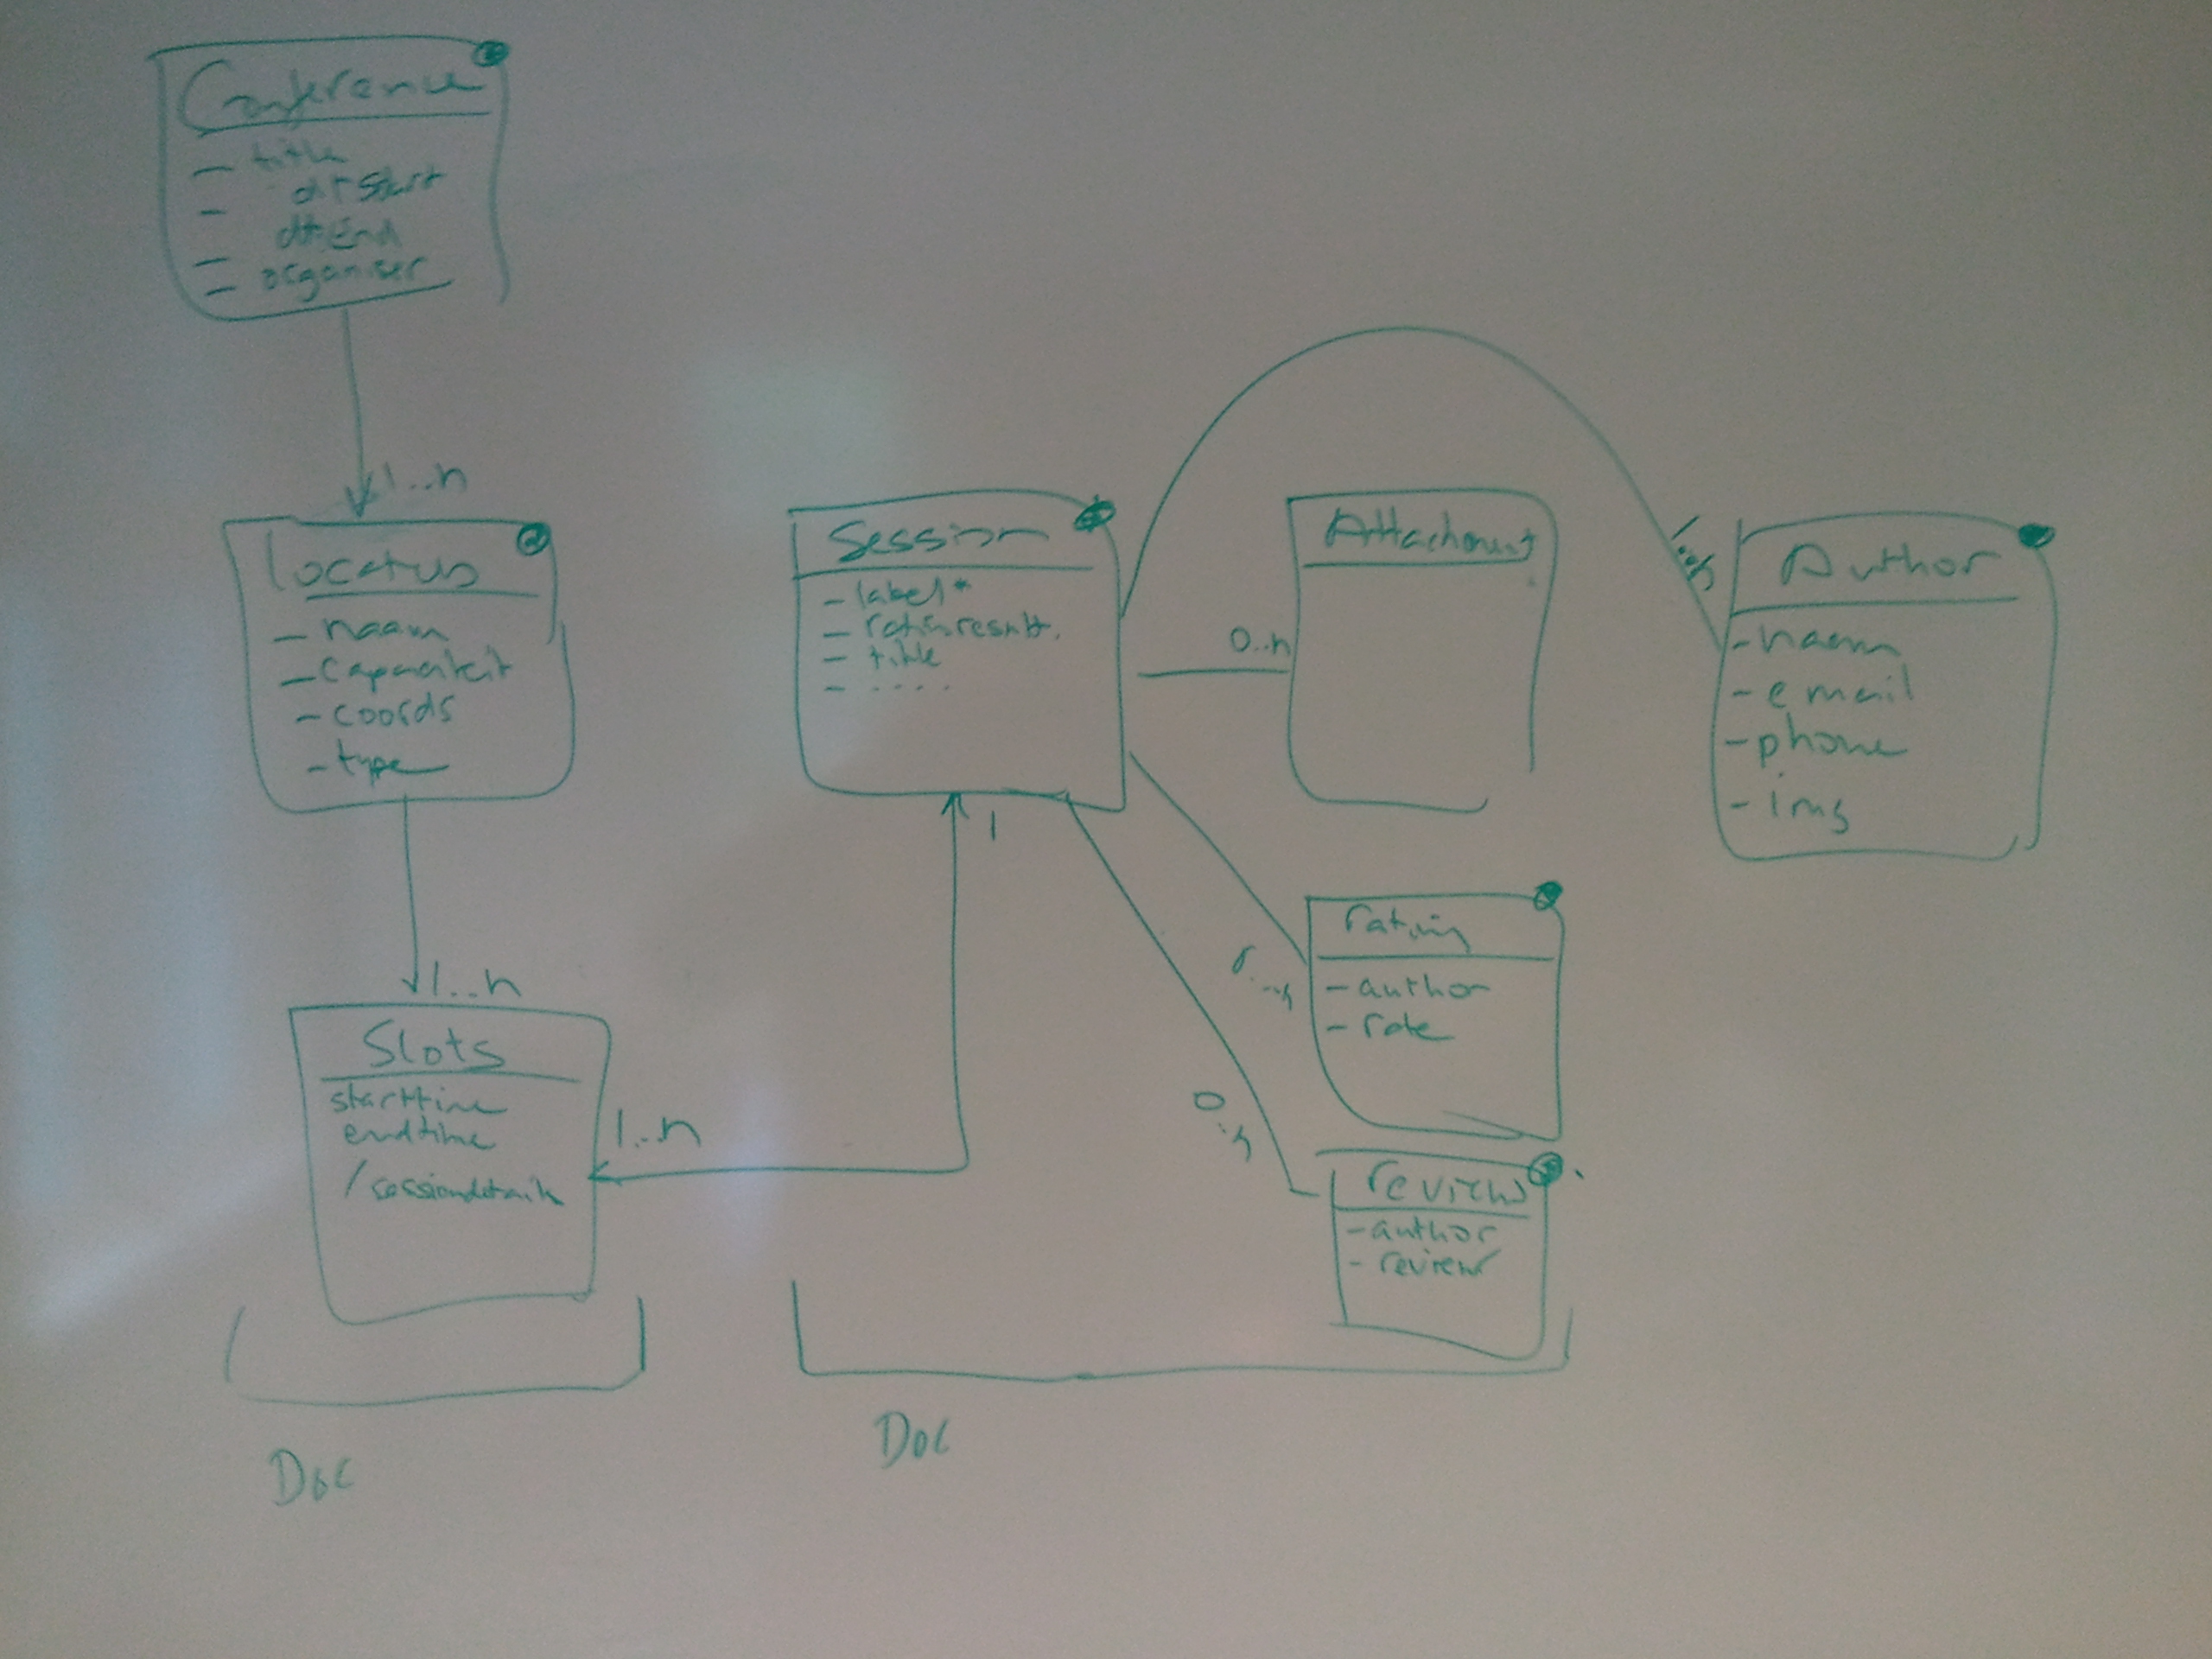 Conference
- title
- dtStart
dtEnd
- organiser
1..n
Locatus
- naam
- capaciteit
- coords
- type
1..n
Slots
starttime
endtime
/sessiondetails
1..n
Doc
Session
- label*
- title
- ....
1
0..n
Attachment
1..n
Author
- naam
- email
- phone
- img
rating
- author
- rate
0..n
reviews
- author
- review
Doc